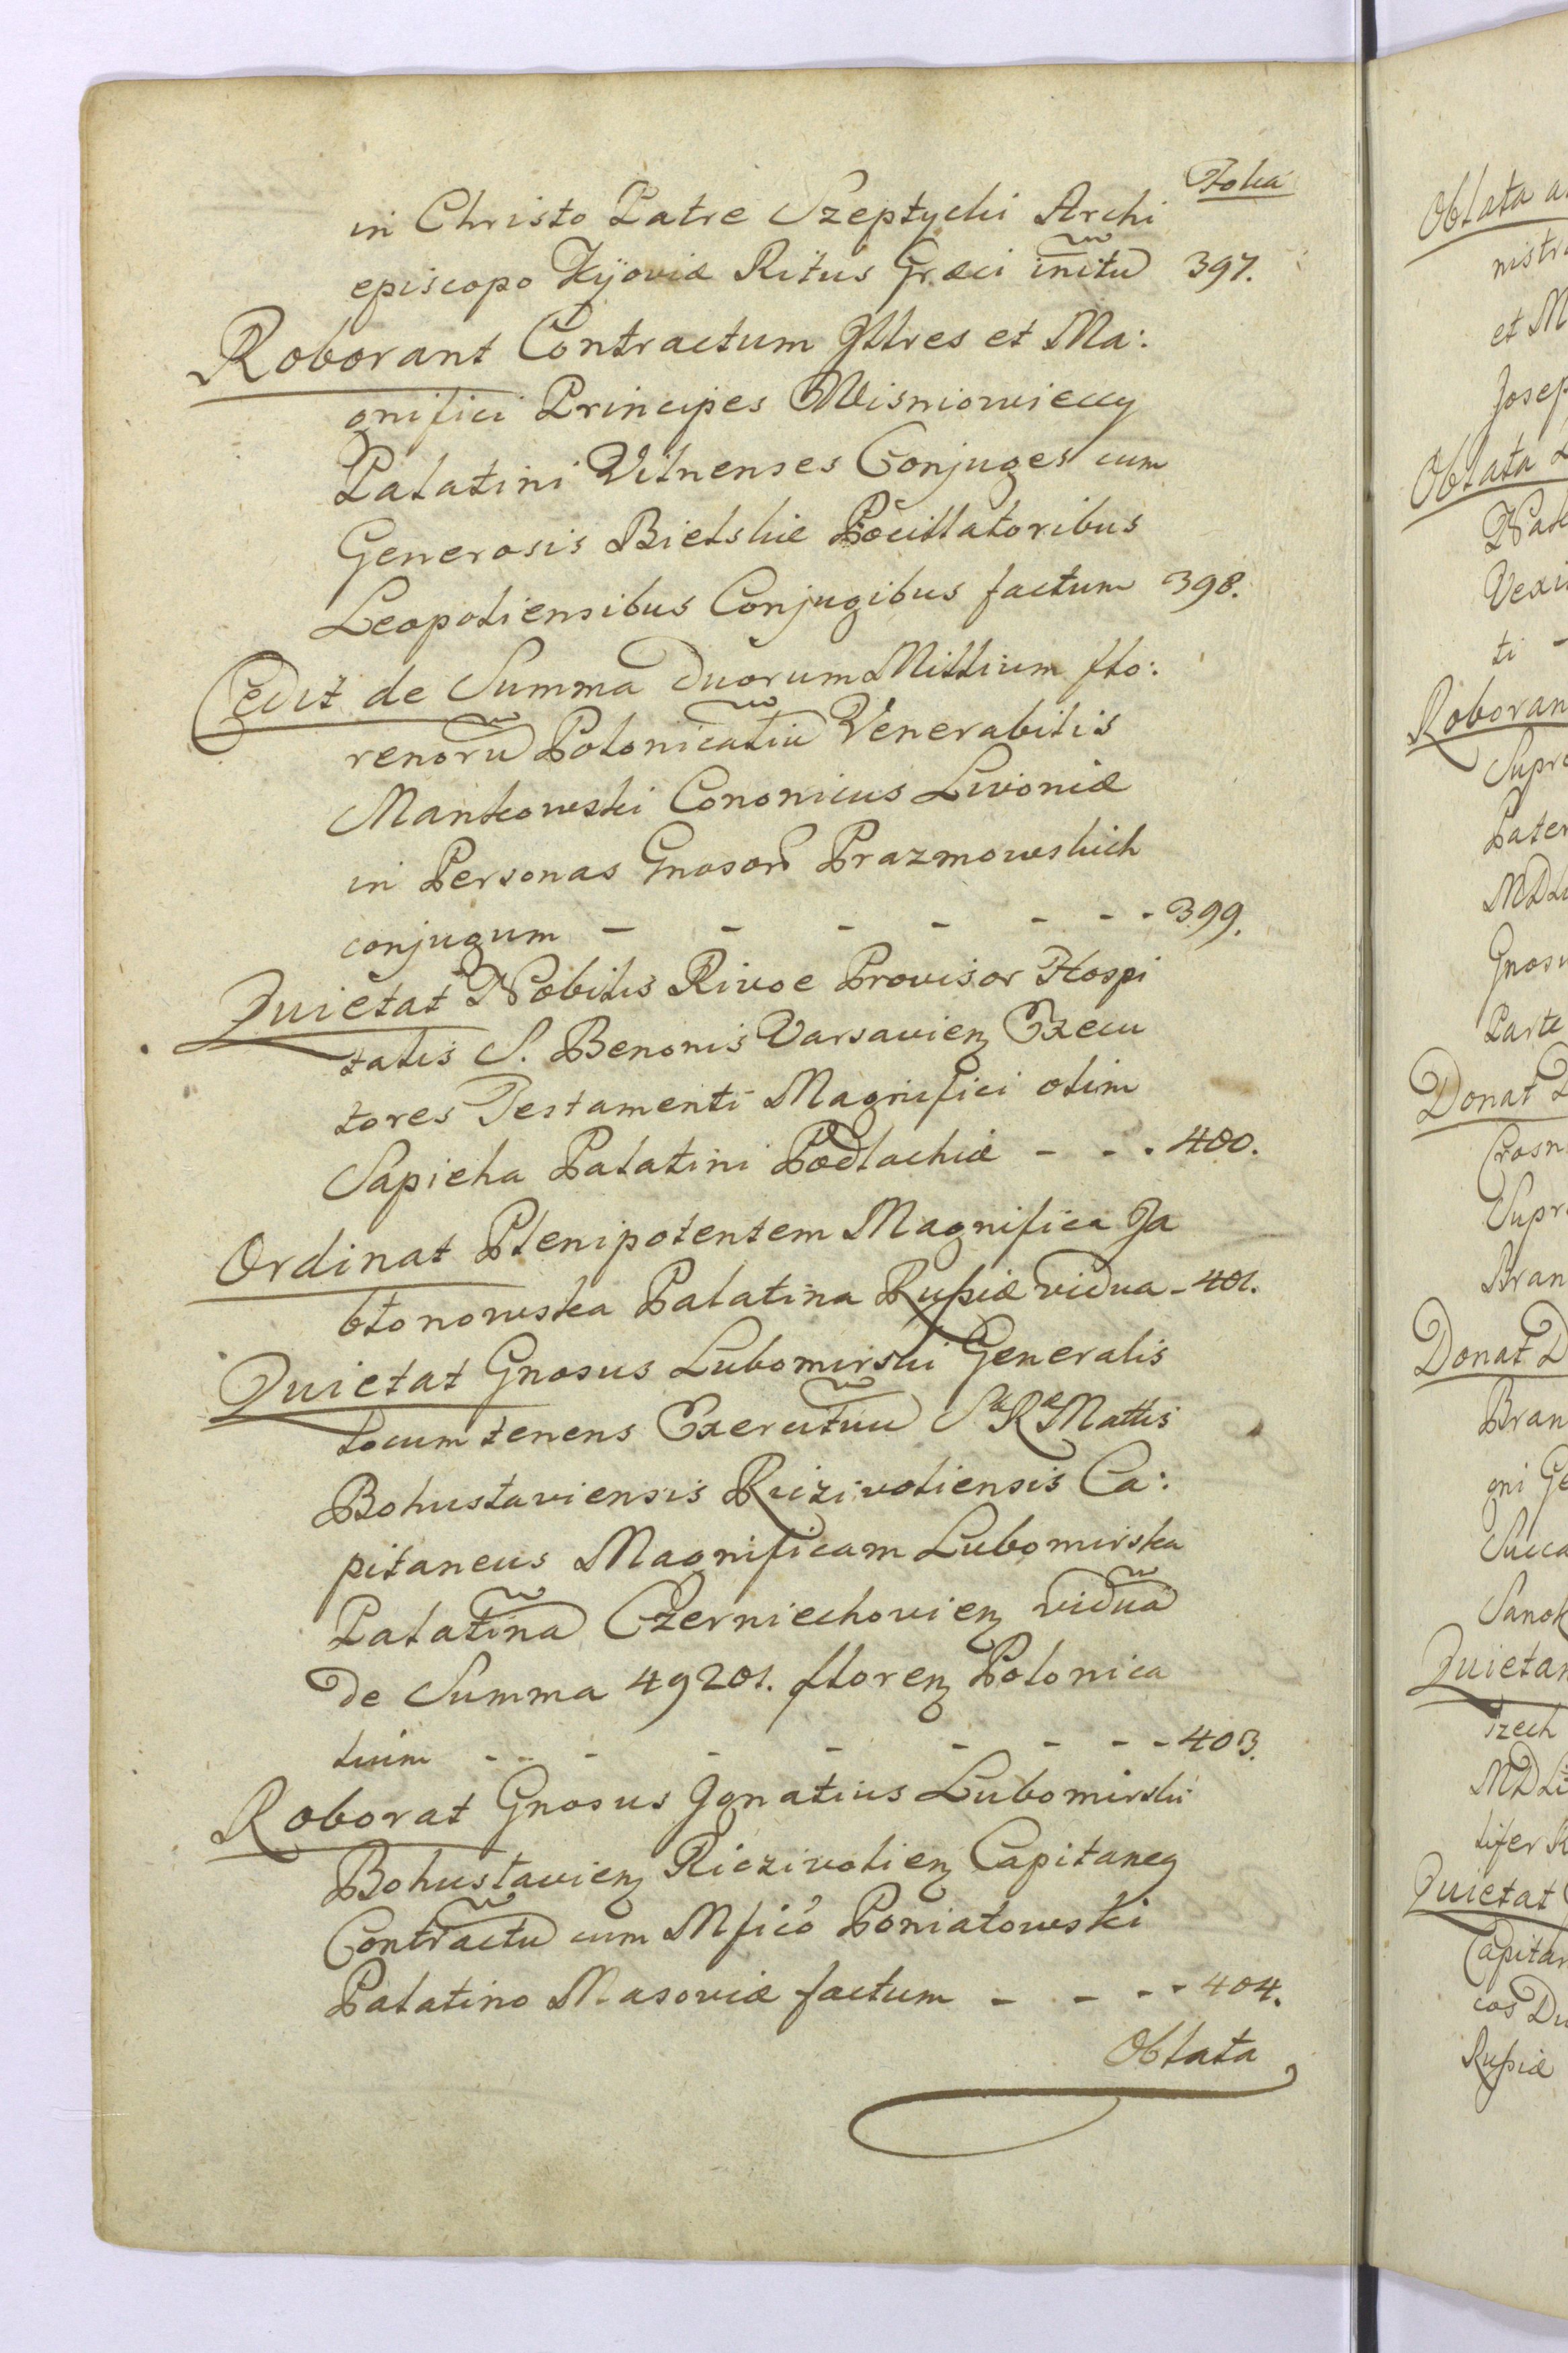 Folia
in Christo Patre Szeptycki Archi
episcopo Kijoviæ Ritus Græci initũ 397.
Roborant Contractum Illres et Ma:
gnifici Principes Wisniowieccy
Palatini Vilnenses Conjuges cum
Generosis Bielskie Pocillatoribus
Leopoliensibus Conjugibus factum 398.
Cedit de Summa duorum Millium flo:
renorũ Polonicaliũ Venerabilis
Mankowski Cononicus Livoniæ
in Personas Gnosorũ Prazmowskich
conjugum - - - - - - - 399.
Quietat Nobilis Rivoe Provisor Hospi
talis S. Benonis Varsavienȝ Execu
tores Testamenti Magnifici olim
Sapieha Palatini Podlachiæ - - - 400.
Ordinat Plenipotentem Magnifica Ja
błonowska Palatina Rußiæ vidua - 401.
Quietat Gnosus Lubomirski Generalis
locum tenens Exercituũ Sæ Ræ Mattis
Bohuslaviensis Ricziwoliensis Ca:
pitaneus Magnificam Lubomirska
Palatinã Czerniechovienȝ viduã
de Summa 49201. florenȝ Polonica
lium - - - - - - - - 403.
Roborat Gnosus Ignatius Lubomirski
Bohuslavienȝ Ricziwolienȝ Capitaneg
Contractũ cum Mfico Poniatowski
Palatino Masoviæ factum - - - - 404.
Oblata
Oblata
nistr
et M
Josep
Oblata
Vexi
ti -
Roboran
Supr
Pater
Parte
Donat
Crosn
Supr
Bran
Donat D
Bran
gni Ge
Sanok
Quietan
czech
Quietat
Capitan
cos Du
Rußiæ